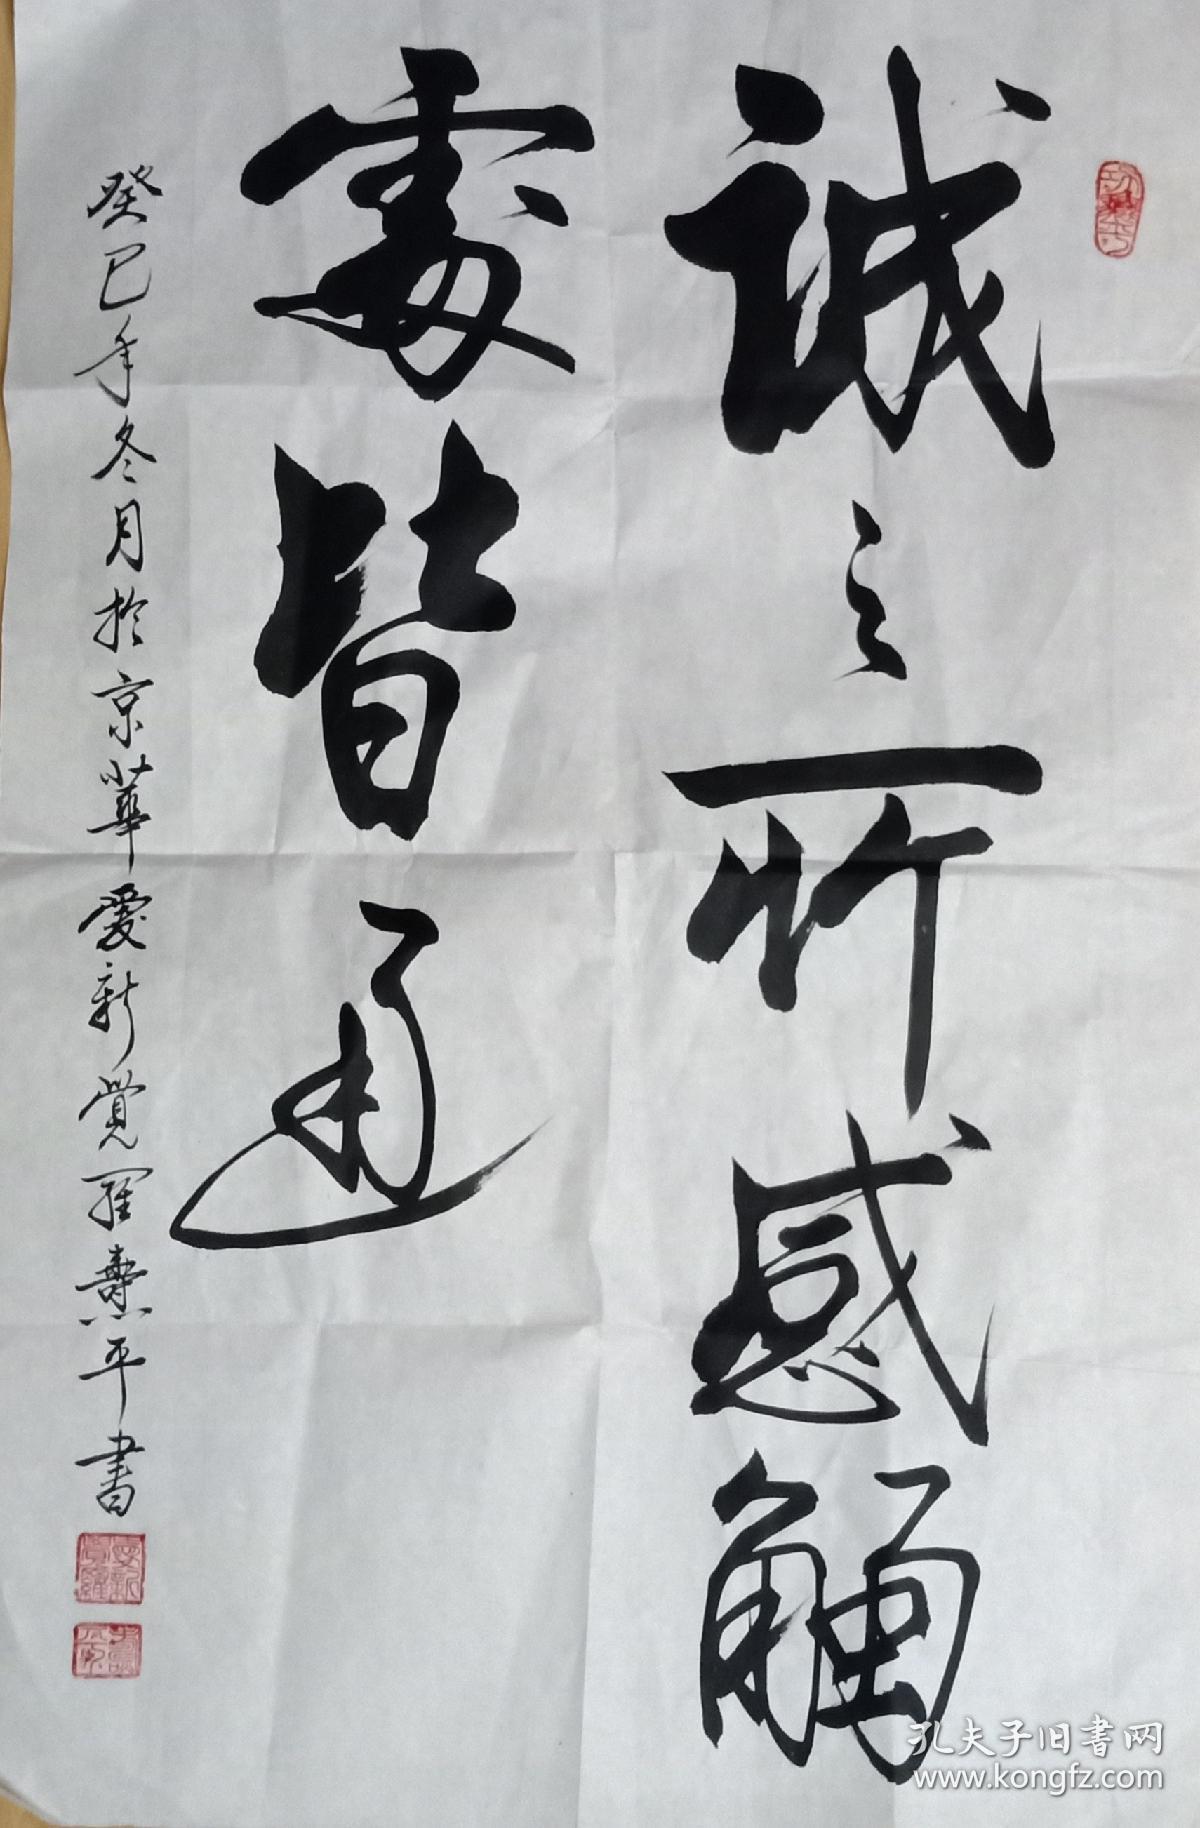 誠之所感觸
處皆通
癸巳年冬月於京華愛新覺羅燾平書
愛新覺羅
孔夫子旧书网
www.kongfz.com